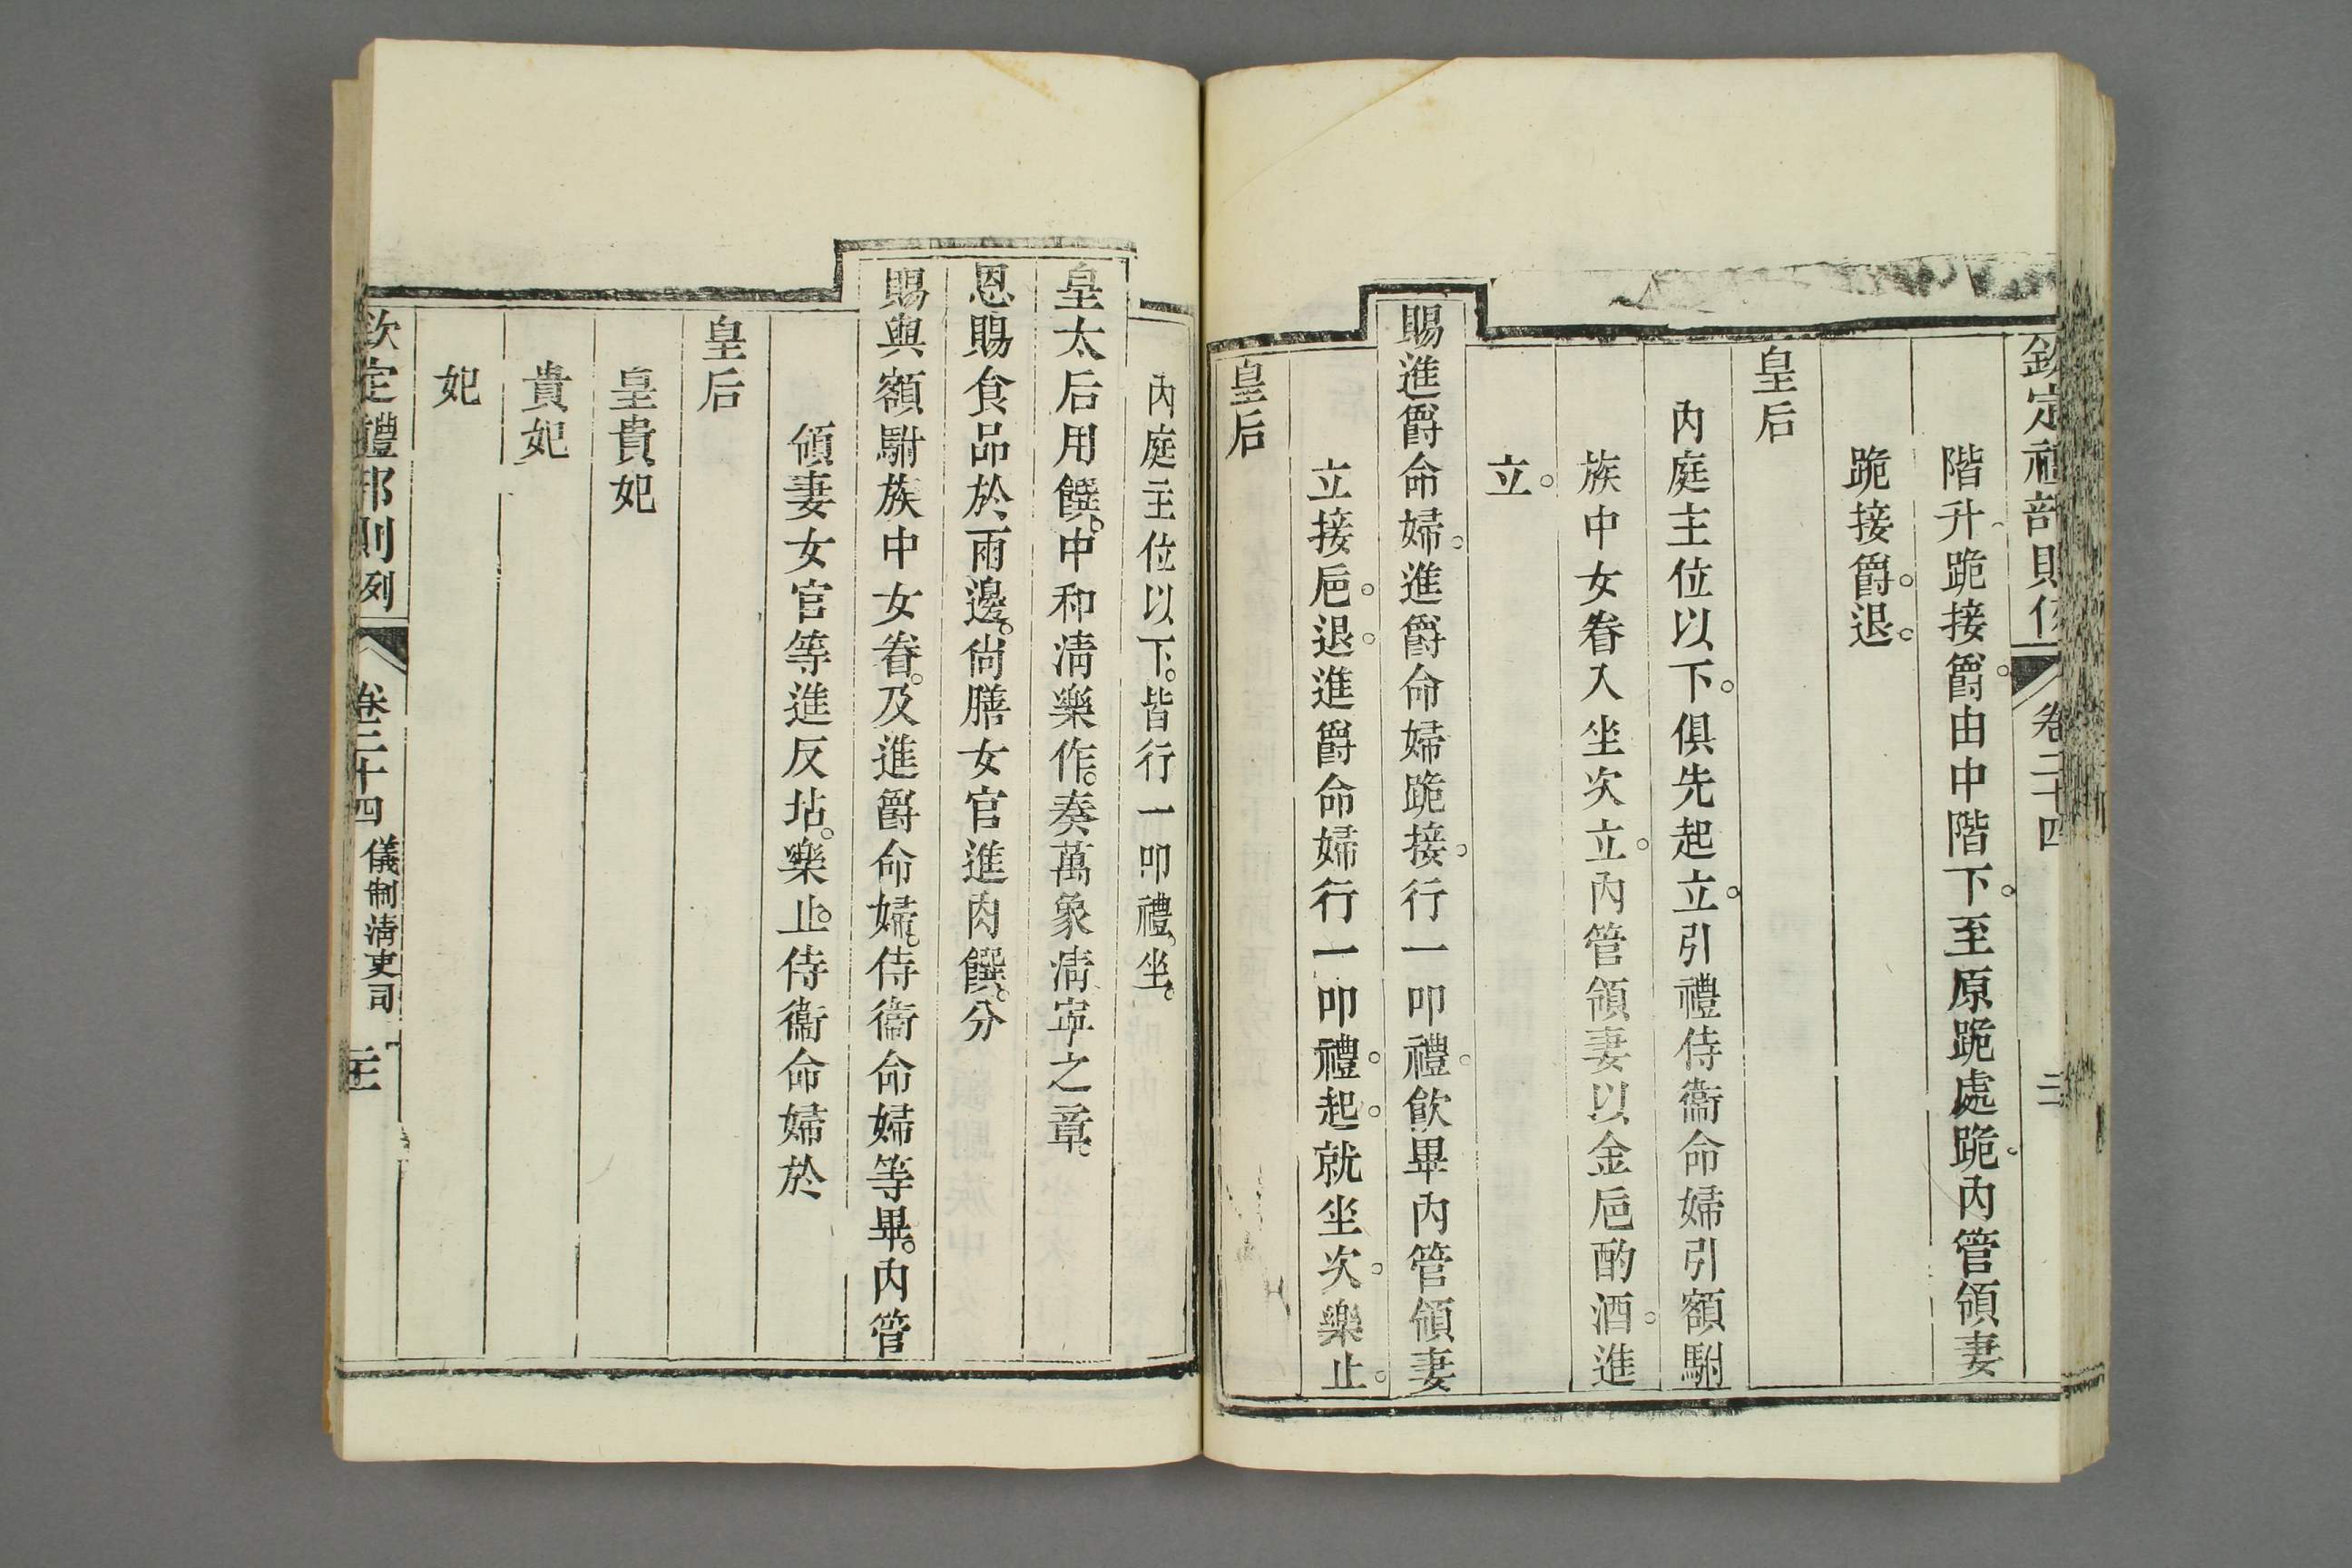 欽定禮部則例 卷二十四 二
階升跪接爵。由中階下。至原跪處跪。內管領妻
跪接爵。退。
皇后
內庭主位以下。俱先起立。引禮侍衞命婦引額駙
族中女眷入坐次立。內管領妻以金卮酌酒。進
立。
賜進爵命婦。進爵命婦跪接。行一叩禮。飲畢內管領妻
立接卮。退。進爵命婦行一叩禮。起。就坐次。樂止。
皇后
內庭主位以下。皆行一叩禮。坐。
皇太后用饌。中和淸樂作。奏萬象淸寜之章。
恩賜食品於兩邊。尙膳女官進肉饌。分
賜與額駙族中女眷。及進爵命婦。侍衞命婦等畢。內管
領妻女官等進反坫。樂止。侍衞命婦於
皇后
皇貴妃
貴妃
妃
欽定禮部則列 卷二十四 儀制淸吏司